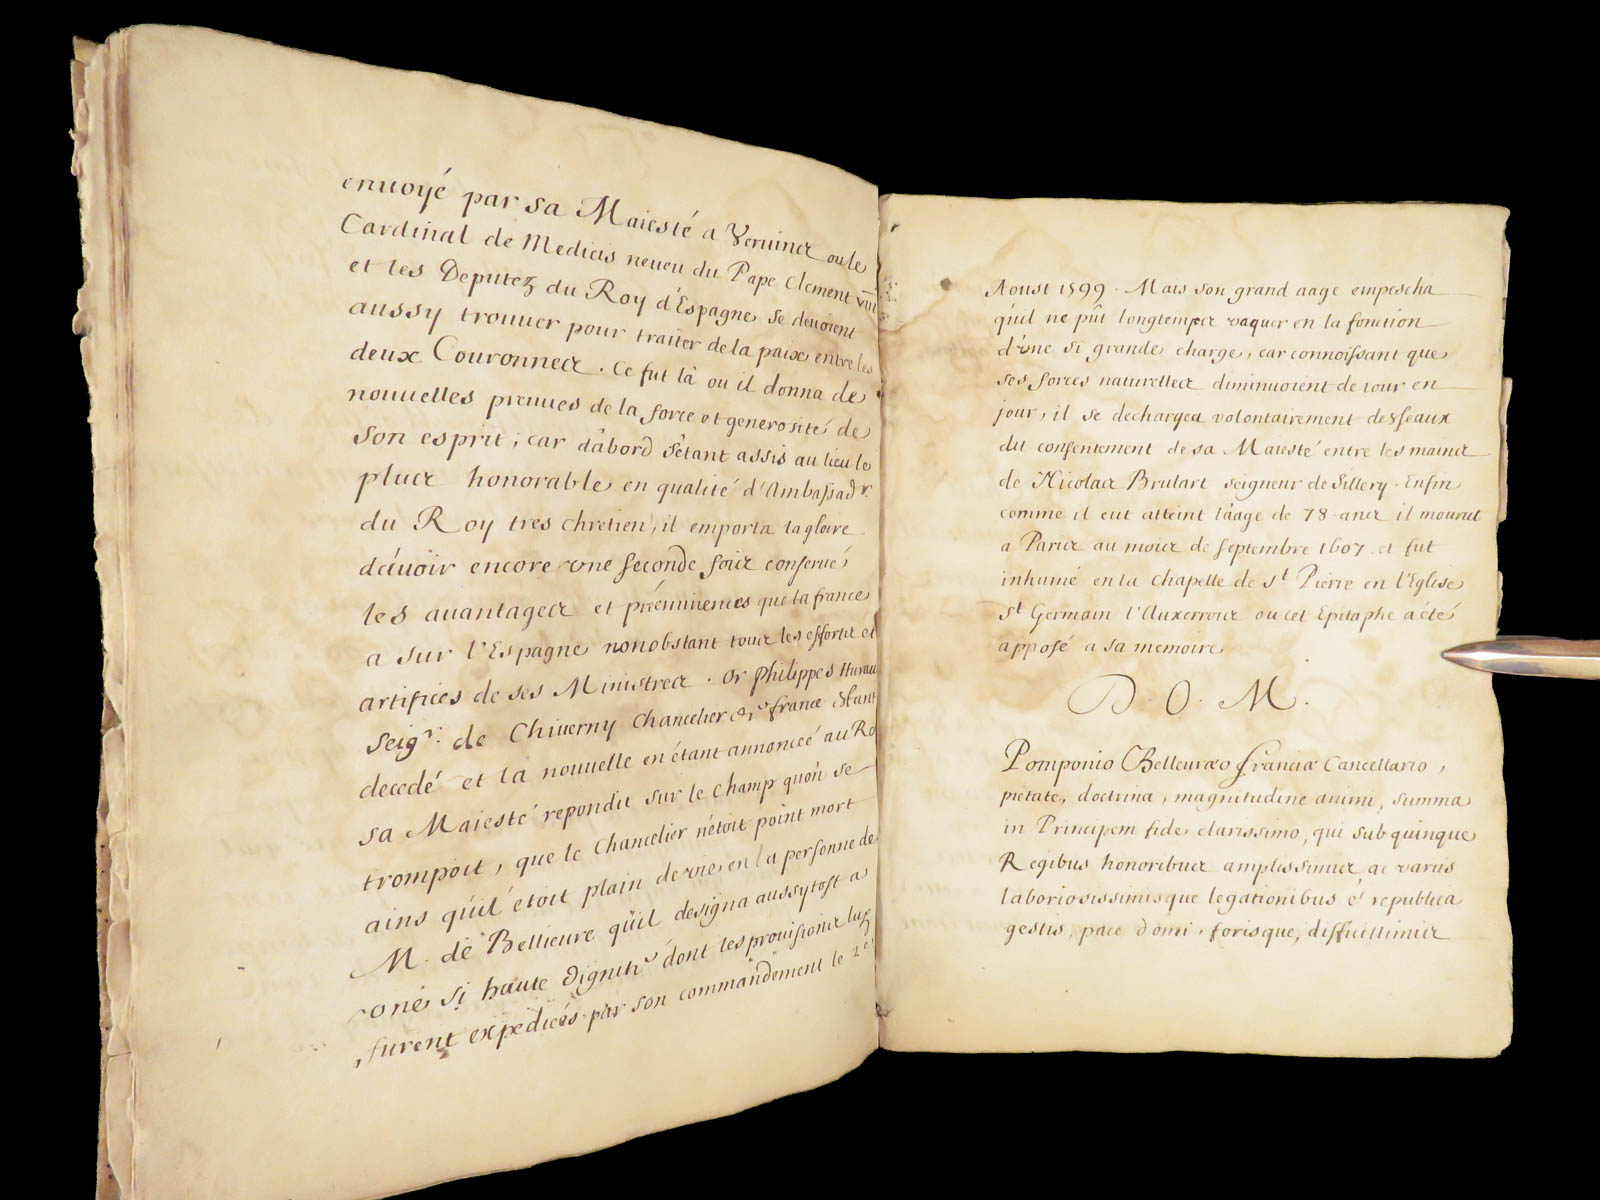 envoyé par sa Maiesté a Vervincz ou le
Cardinal de Medicis neueu du Pape Clement VIII
et les Deputez du Roy d'Espagne se deuoient
aussy trouuer pour traiter de la paix entre les
deux Couronnecz. Ce fut là ou il donna de
nouuelles preuues de la force et generosité de
son esprit; car d'abord s'êtant assis au lieu le
plucz honorable en qualité d'Ambassadr.
du Roy tres chretien, il emporta la gloire
d'auoir encore vne seconde foicz conserué,
les auantagecz et préeminences que la france
a sur l'Espagne nonobstant toucz les effortcz et
artifices de ses Ministrecz. Or Philippes Hurau
Seigr. de Chiuerny Chancelier de france étant
decedé et la nouuelle en étant annoncée au Ro
sa Maiesté repondit sur le champ quón se
trompoit, que le Chancelier n'étoit point mort
ains qu'il étoit plain de vie en la personne de
M. de Bellieure qu'il designa aussytost a
vne si haute dignité dont les prouisioncz luy
furent expediées par son commandement le 2e.
Aoust 1599. Mais son grand aage empescha
qu'il ne pût longtempcz vaquer en la fonction
d'vne si grande charge, car connoissant que
ses forces naturellecz diminuoient de iour en
jour, il se dechargea volontairement des seaux
du consentement de sa Maiesté entre les maincz
de Nicolacz Brulart seigneur de Sillery. Enfin
comme il eut atteint l'âage de 78 ancz il mourut
a Paricz au moicz de septembre 1607. et fut
inhumé en la chapelle de St. Pierre en l'Eglise
St. Germain l'Auxerroicz ou cet Epitaphe a été
apposé a sa memoire
D. O. M.
Pomponio Belleuræo Franciæ Cancellario,
pietate, doctrina, magnitudine animi, summa
in Principem fide clarissimo, qui sub quinque
Regibus honoribucz amplissimicz ac variis
laboriosissimisque legationibus é republica
gestis, pace domi, forisque, difficillimicz